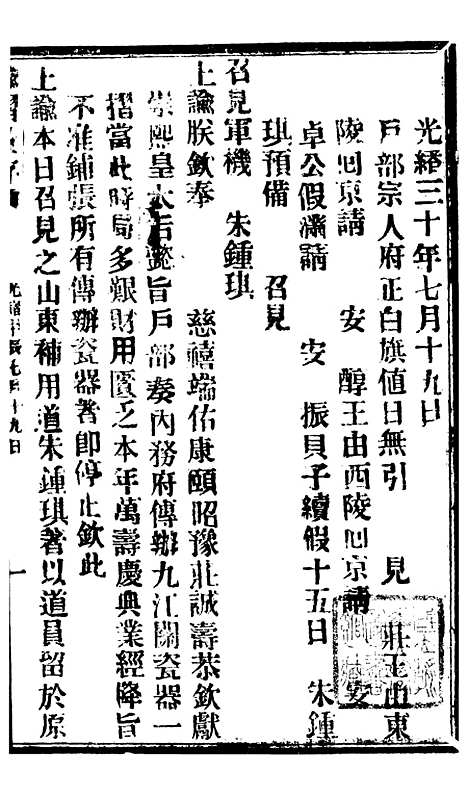 光緒三十年七月十九日
戶部宗人府正白旗值日無引　見　莊王由東
陵囘京請　安　醇王由西陵囘京請　安
卓公假滿請　安　振貝子續假十五日　朱鍾
琪預備　召見
召見軍機　朱鍾琪
上諭朕欽奉　慈禧端佑康頤昭豫莊誠壽恭欽獻
崇熙皇太后懿旨戶部奏內務府傳辦九江關瓷器一
摺當此時局多艱財用匱乏本年萬壽慶典業經降旨
不准鋪張所有傳辦瓷器著卽停止欽此
上諭本日召見之山東補用道朱鍾琪著以道員留於原
諭摺彙存　光緒甲辰七月十九日　一